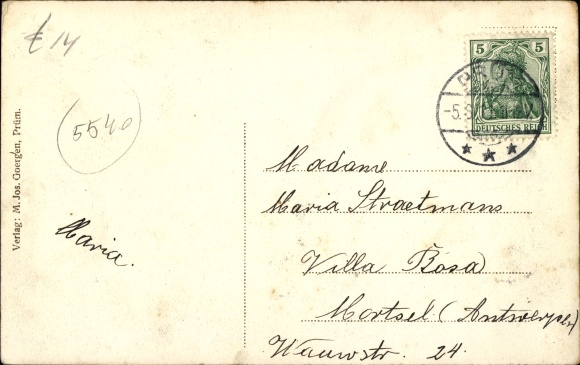 € 14
5540
Verlag: M. Jos. Goergen, Prüm.
Maria.
5 5
DEUTSCHES REICH
Madame
Maria Straetmans
Villa Rosa
Mortsel (Antwerpen)
Wauwstr. 24.